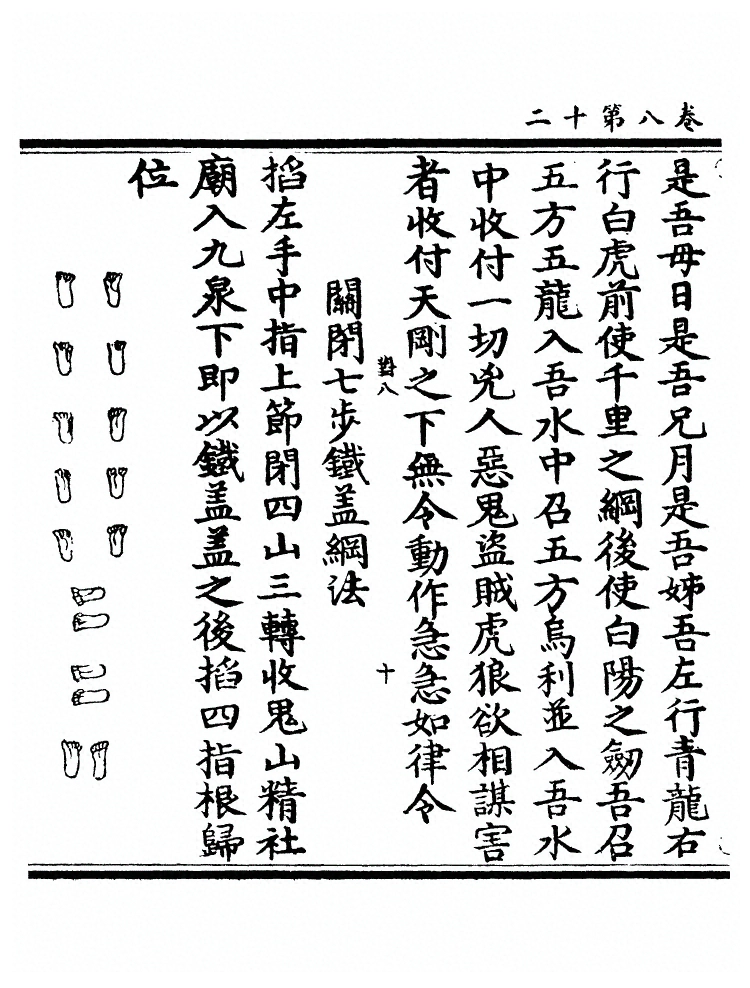 卷八第十二
是吾母日是吾兄月是吾姊吾左行青龍右
行白虎前使千里之綱後使白陽之劒吾召
五方五龍入吾水中召五方烏利並入吾水
中收付一切兇人惡鬼盜賊虎狼欲相謀害
者收付天剛之下無令動作急急如律令
對八 十
關閉七步鐵盖綱法
搯左手中指上節閉四山三轉收鬼山精社
廟入九泉下即以鐵盖盖之後搯四指根歸
位